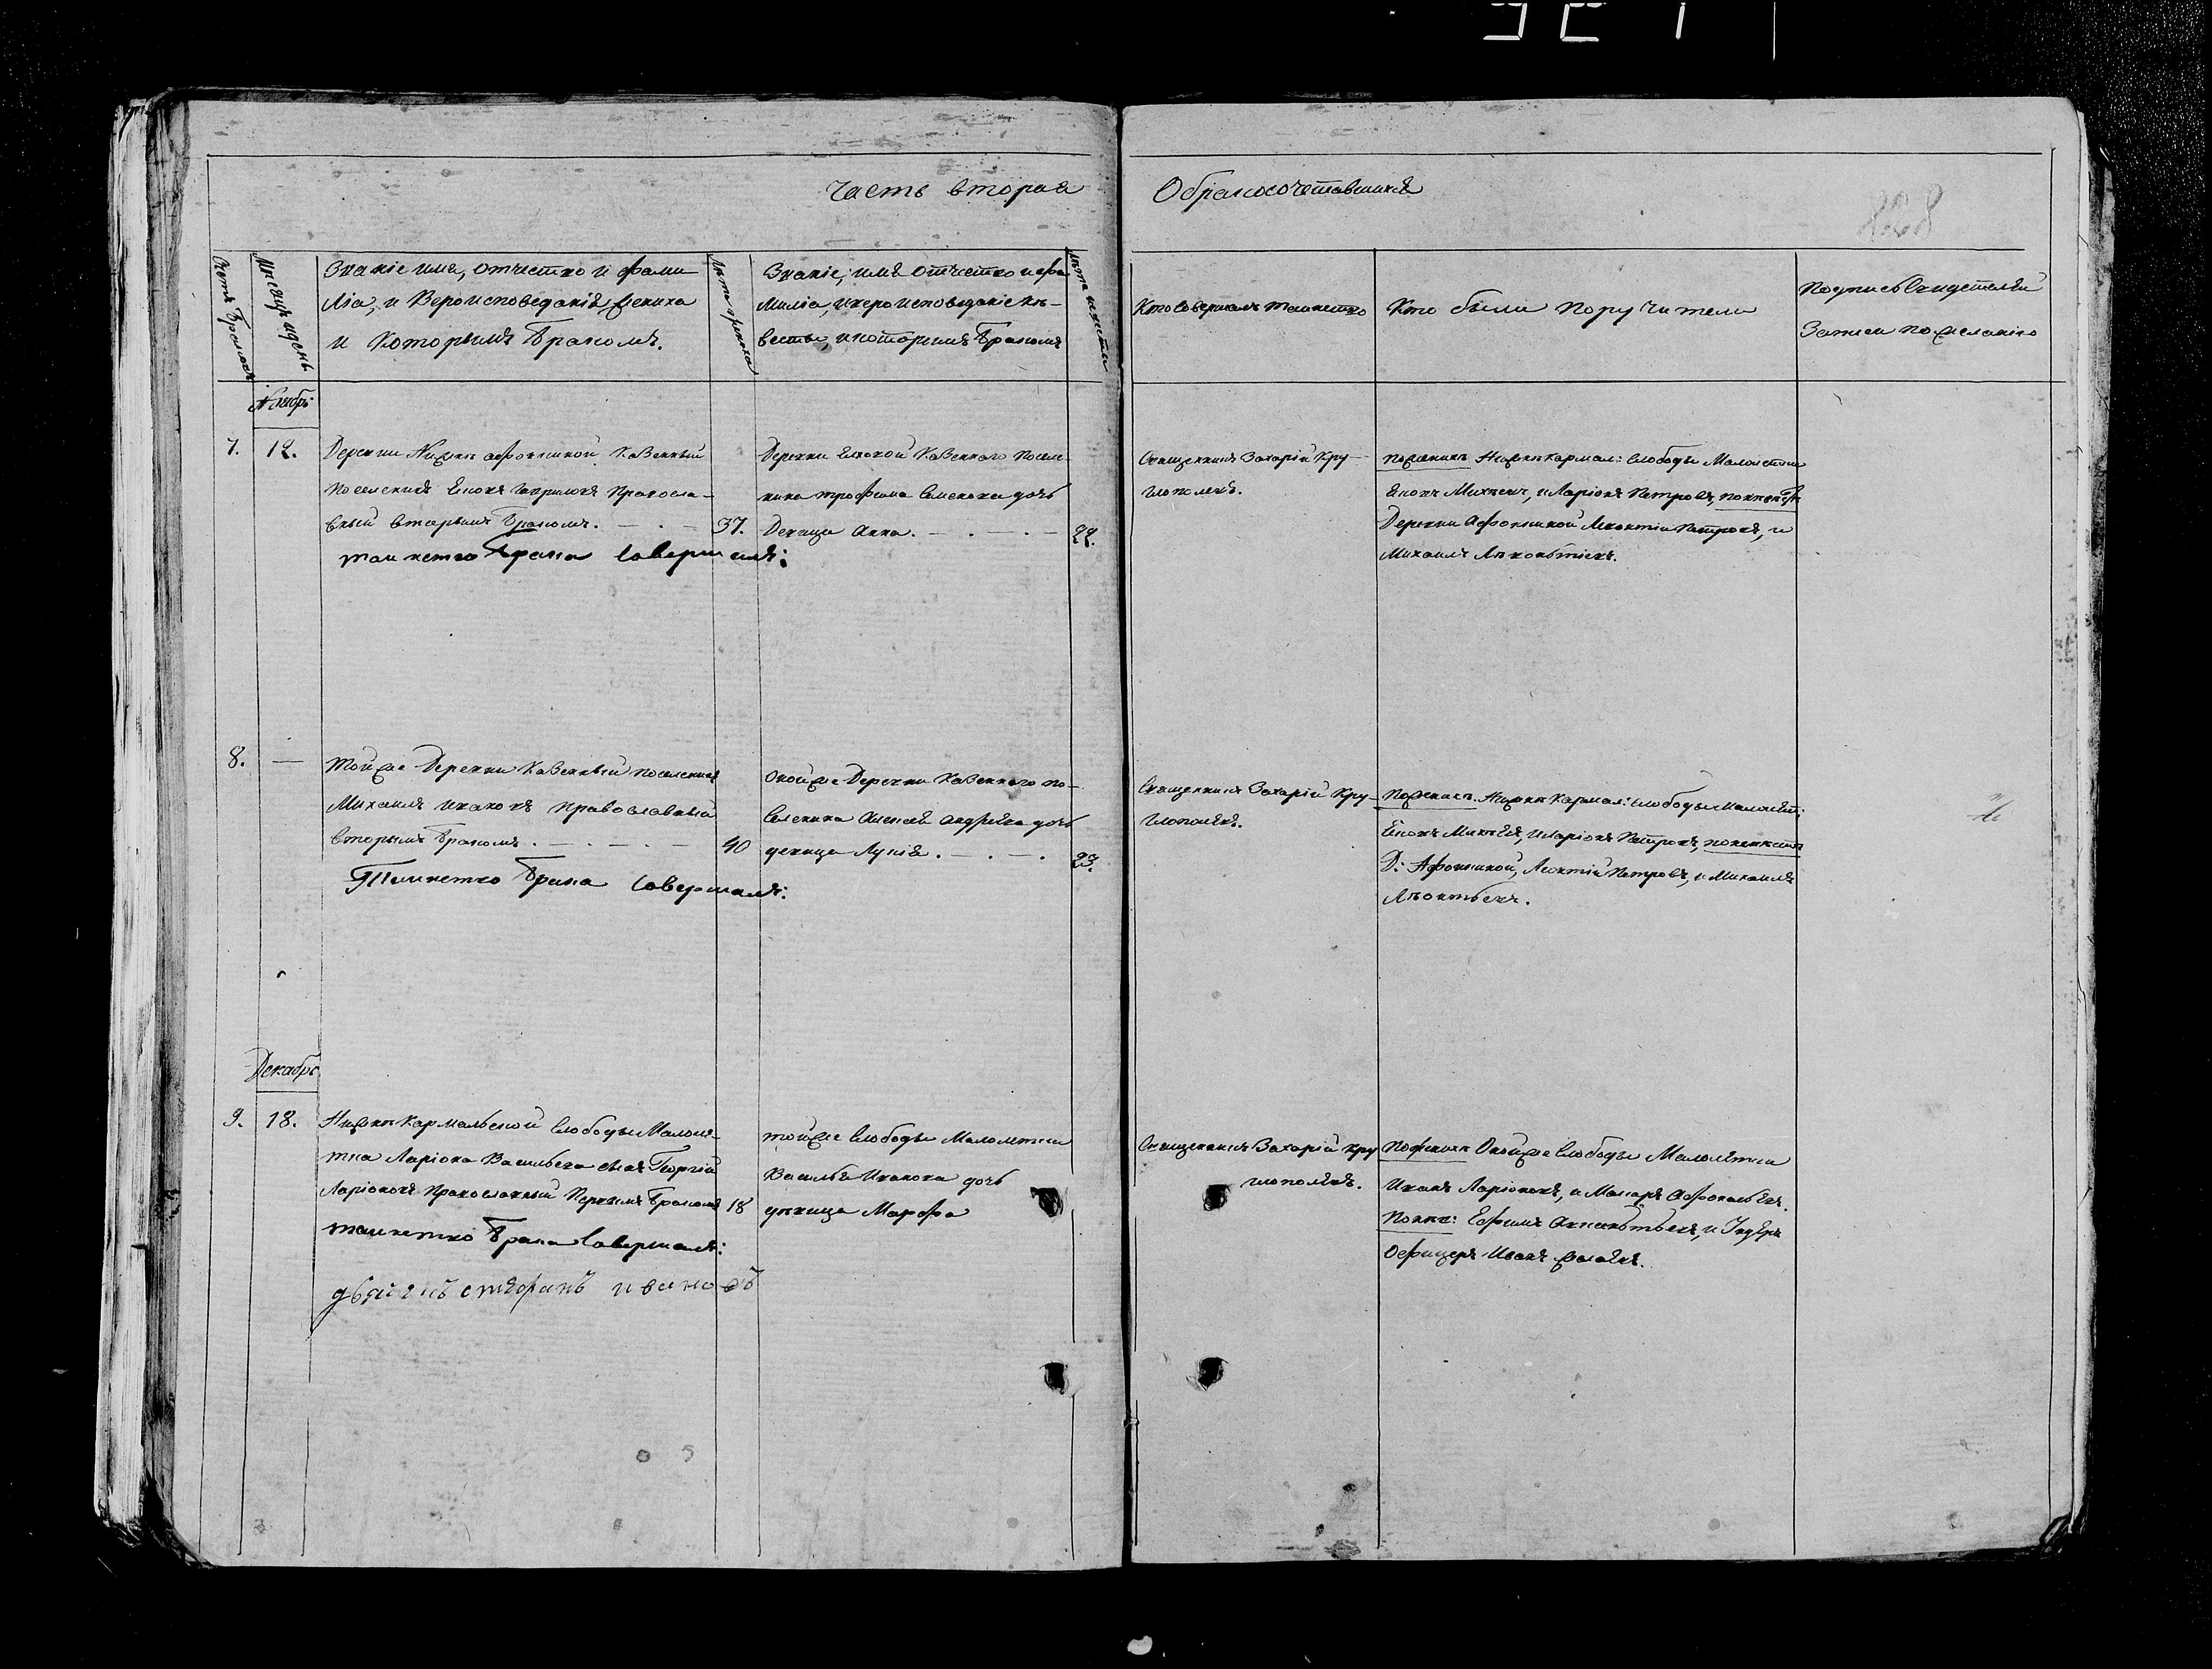 Часть вторая
О бракосочетавшихся
228
Счетъ браковъ
Месяцъ и день
Званіе имя, отчество и фами
лія, и вероисповеданія жениха
и которымъ бракомъ.
Лета жениха
Званіе, имя отчество и фа
милія, и вероисповеданіе не-
весты, и которымъ бракомъ
Лета невесты
Кто совершалъ таинство
Кто были поручители
Подпись свидетелей
Записи по желанію
Ноябрь
7. 12.
Деревни казенный
поселенинъ Правосла-
вный вторымъ бракомъ. 37.
таинство брака совершалъ:
Деревни казеннаго поселе
нина Трофима Семенова дочь
девица Анна. 22.
Священникъ Захарій Кру-
глополевъ.
по женихе Нижне Кармал: слободы Малолетки
и Ларіонъ Петровъ, по невесте
Деревни Афонькиной Леонтій Петровъ, и
Михаилъ Леонтьевъ.
8. —
Той же деревни казенный поселенинъ
Михаилъ Ивановъ православный
вторымъ бракомъ. 40
Таинство брака совершалъ:
Оной же деревни казеннаго по-
селенина Алексея Андреева дочь
девица Лукія. 23.
Священникъ Захарій Кру-
глополевъ.
По женихе. Нижне Кармал: слободы малолетк:
и Ларіонъ Петровъ, по невесте
Д: Афонькиной, Леонтій Петровъ, и Михаилъ
Леонтьевъ.
Декабрь
9. 18.
Нижне Кармальской слободы Малоле-
тка Ларіона Васильева сынъ Георгій
Ларіоновъ православный первымъ бракомъ 18
таинство брака совершалъ:
дьячекъ стефанъ ивановъ
той же слободы малолетки
Василья Иванова дочь
девица Марфа
Священникъ Захарій Кру
глополевъ.
По женихе Оной же слободы Малолетки
Иванъ Ларіоновъ, и Макаръ Афонасьевъ.
По неве: Ефимъ и Ундеръ
Офицеръ Иванъ